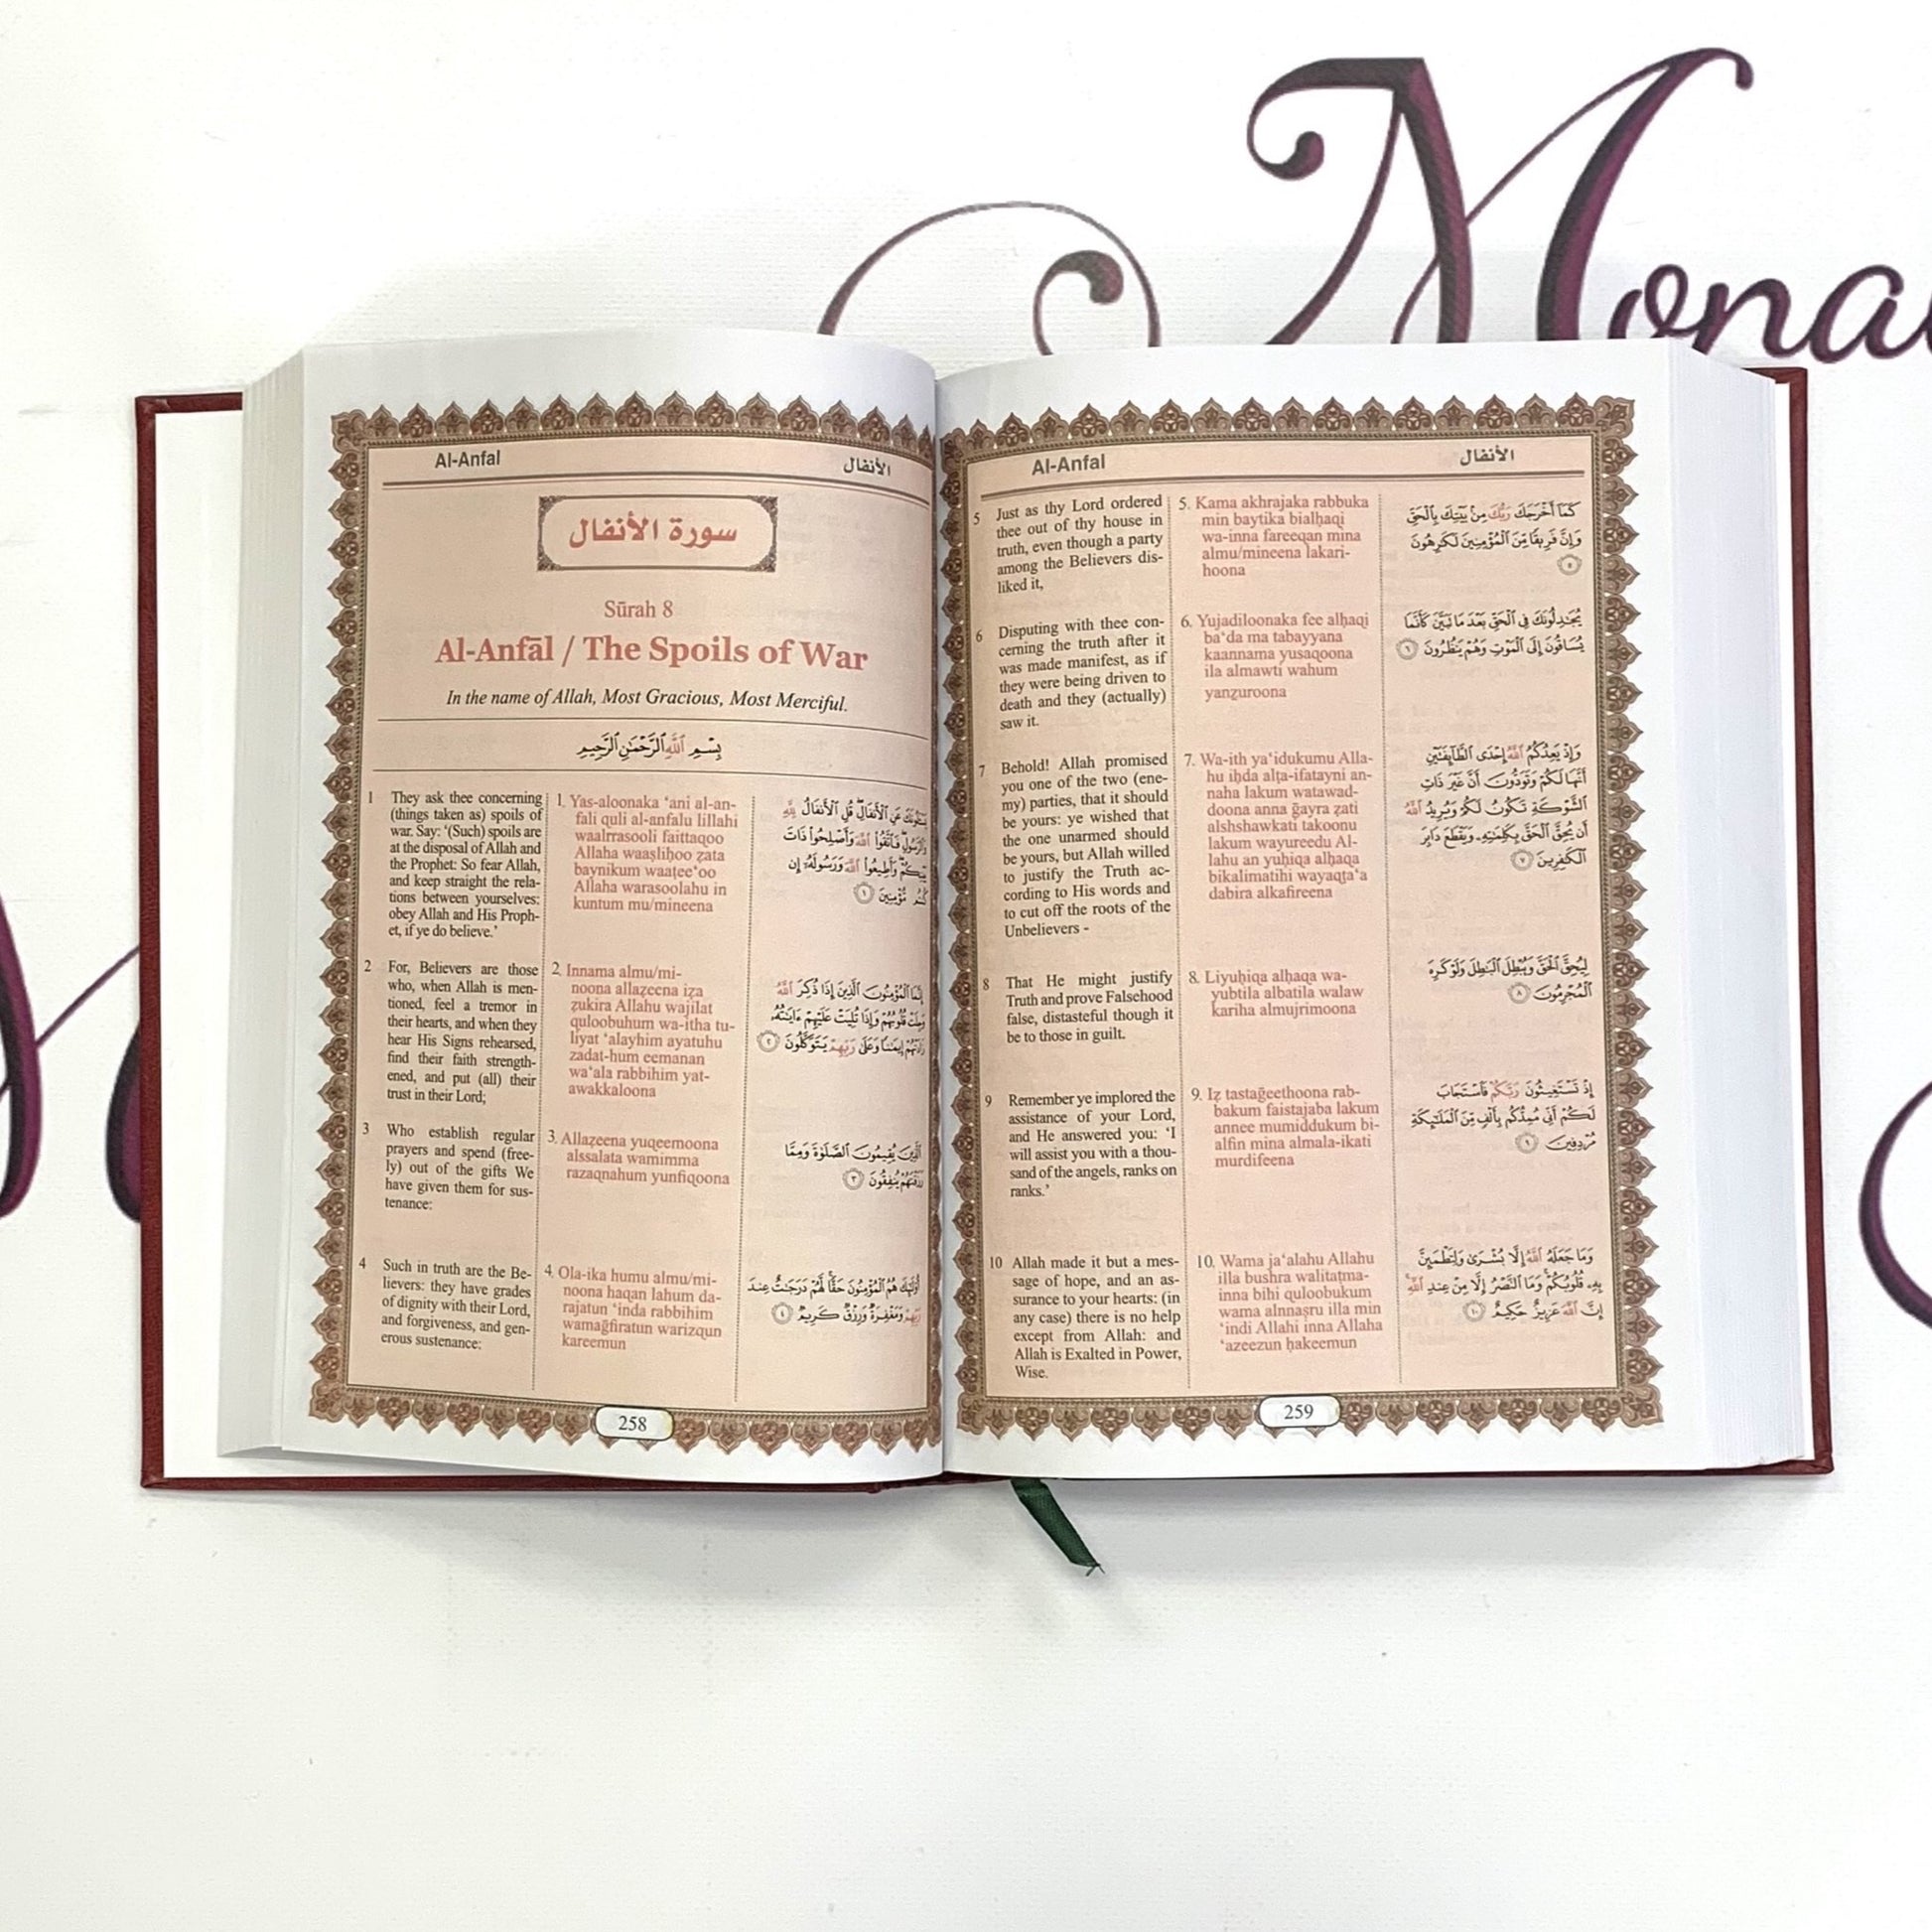 Mona
Al-Anfal
الأنفال
سورة الأنفال
Sūrah 8
Al-Anfāl / The Spoils of War
In the name of Allah, Most Gracious, Most Merciful.
بِسْمِ اللَّهِ الرَّحْمَٰنِ الرَّحِيمِ
1 They ask thee concerning
(things taken as) spoils of
war. Say: ‘(Such) spoils are
at the disposal of Allah and
the Prophet: So fear Allah,
and keep straight the rela-
tions between yourselves:
obey Allah and His Proph-
et, if ye do believe.’
1. Yas-aloonaka ‘ani al-an-
fali quli al-anfalu lillahi
waalrrasooli faittaqoo
Allaha waaṣliḥoo ẓata
baynikum waaṭee‘oo
Allaha warasoolahu in
kuntum mu/mineena
يَسْـَٔلُونَكَ عَنِ ٱلْأَنفَالِ ۖ قُلِ ٱلْأَنفَالُ لِلَّهِ
وَٱلرَّسُولِ ۖ فَٱتَّقُوا۟ ٱللَّهَ وَأَصْلِحُوا۟ ذَاتَ
بَيْنِكُمْ ۖ وَأَطِيعُوا۟ ٱللَّهَ وَرَسُولَهُۥٓ إِن
كُنتُم مُّؤْمِنِينَ ١
2 For, Believers are those
who, when Allah is men-
tioned, feel a tremor in
their hearts, and when they
hear His Signs rehearsed,
find their faith strength-
ened, and put (all) their
trust in their Lord;
2. Innama almu/mi-
noona allaẓeena iẓa
ẓukira Allahu wajilat
quloobuhum wa-itha tu-
liyat ‘alayhim ayatuhu
zadat-hum eemanan
wa‘ala rabbihim yat-
awakkaloona
إِنَّمَا ٱلْمُؤْمِنُونَ ٱلَّذِينَ إِذَا ذُكِرَ ٱللَّهُ
وَجِلَتْ قُلُوبُهُمْ وَإِذَا تُلِيَتْ عَلَيْهِمْ ءَايَـٰتُهُۥ
زَادَتْهُمْ إِيمَـٰنًا وَعَلَىٰ رَبِّهِمْ يَتَوَكَّلُونَ ٢
3 Who establish regular
prayers and spend (free-
ly) out of the gifts We
have given them for sus-
tenance:
3. Allaẓeena yuqeemoona
alssalata wamimma
razaqnahum yunfiqoona
ٱلَّذِينَ يُقِيمُونَ ٱلصَّلَوٰةَ وَمِمَّا
رَزَقْنَـٰهُمْ يُنفِقُونَ ٣
4 Such in truth are the Be-
lievers: they have grades
of dignity with their Lord,
and forgiveness, and gen-
erous sustenance:
4. Ola-ika humu almu/mi-
noona haqan lahum da-
rajatun ‘inda rabbihim
wamaḡfiratun warizqun
kareemun
أُو۟لَـٰٓئِكَ هُمُ ٱلْمُؤْمِنُونَ حَقًّا ۚ لَّهُمْ دَرَجَـٰتٌ عِندَ
رَبِّهِمْ وَمَغْفِرَةٌ وَرِزْقٌ كَرِيمٌ ٤
258
Al-Anfal
الأنفال
5 Just as thy Lord ordered
thee out of thy house in
truth, even though a party
among the Believers dis-
liked it,
5. Kama akhrajaka rabbuka
min baytika bialḥaqi
wa-inna fareeqan mina
almu/mineena lakari-
hoona
كَمَآ أَخْرَجَكَ رَبُّكَ مِنۢ بَيْتِكَ بِٱلْحَقِّ
وَإِنَّ فَرِيقًا مِّنَ ٱلْمُؤْمِنِينَ لَكَـٰرِهُونَ
٥
6 Disputing with thee con-
cerning the truth after it
was made manifest, as if
they were being driven to
death and they (actually)
saw it.
6. Yujadiloonaka fee alḥaqi
ba‘da ma tabayyana
kaannama yusaqoona
ila almawti wahum
yanẓuroona
يُجَـٰدِلُونَكَ فِى ٱلْحَقِّ بَعْدَ مَا تَبَيَّنَ كَأَنَّمَا
يُسَاقُونَ إِلَى ٱلْمَوْتِ وَهُمْ يَنظُرُونَ ٦
7 Behold! Allah promised
you one of the two (ene-
my) parties, that it should
be yours: ye wished that
the one unarmed should
be yours, but Allah willed
to justify the Truth ac-
cording to His words and
to cut off the roots of the
Unbelievers -
7. Wa-ith ya‘idukumu Alla-
hu iḥda alṭa-ifatayni an-
naha lakum watawad-
doona anna ḡayra ẓati
alshshawkati takoonu
lakum wayureedu Al-
lahu an yuḥiqa alḥaqa
bikalimatihi wayaqta‘a
dabira alkafireena
وَإِذْ يَعِدُكُمُ ٱللَّهُ إِحْدَى ٱلطَّآئِفَتَيْنِ
أَنَّهَا لَكُمْ وَتَوَدُّونَ أَنَّ غَيْرَ ذَاتِ
ٱلشَّوْكَةِ تَكُونُ لَكُمْ وَيُرِيدُ ٱللَّهُ
أَن يُحِقَّ ٱلْحَقَّ بِكَلِمَـٰتِهِۦ وَيَقْطَعَ دَابِرَ
ٱلْكَـٰفِرِينَ ٧
8 That He might justify
Truth and prove Falsehood
false, distasteful though it
be to those in guilt.
8. Liyuḥiqa alḥaqa wa-
yubtila albatila walaw
kariha almujrimoona
لِيُحِقَّ ٱلْحَقَّ وَيُبْطِلَ ٱلْبَـٰطِلَ وَلَوْ كَرِهَ
ٱلْمُجْرِمُونَ ٨
9 Remember ye implored the
assistance of your Lord,
and He answered you: ‘I
will assist you with a thou-
sand of the angels, ranks on
ranks.’
9. Iẓ tastaḡeethoona rab-
bakum faistajaba lakum
annee mumiddukum bi-
alfin mina almala-ikati
murdifeena
إِذْ تَسْتَغِيثُونَ رَبَّكُمْ فَٱسْتَجَابَ
لَكُمْ أَنِّى مُمِدُّكُم بِأَلْفٍ مِّنَ ٱلْمَلَـٰٓئِكَةِ
مُرْدِفِينَ ٩
10 Allah made it but a mes-
sage of hope, and an as-
surance to your hearts: (in
any case) there is no help
except from Allah: and
Allah is Exalted in Power,
Wise.
10. Wama ja‘alahu Allahu
illa bushra walitaṭma-
inna bihi quloobukum
wama alnnaṣru illa min
‘indi Allahi inna Allaha
‘azeezun ḥakeemun
وَمَا جَعَلَهُ ٱللَّهُ إِلَّا بُشْرَىٰ وَلِتَطْمَئِنَّ
بِهِۦ قُلُوبُكُمْ ۚ وَمَا ٱلنَّصْرُ إِلَّا مِنْ عِندِ ٱللَّهِ ۚ
إِنَّ ٱللَّهَ عَزِيزٌ حَكِيمٌ ١٠
259